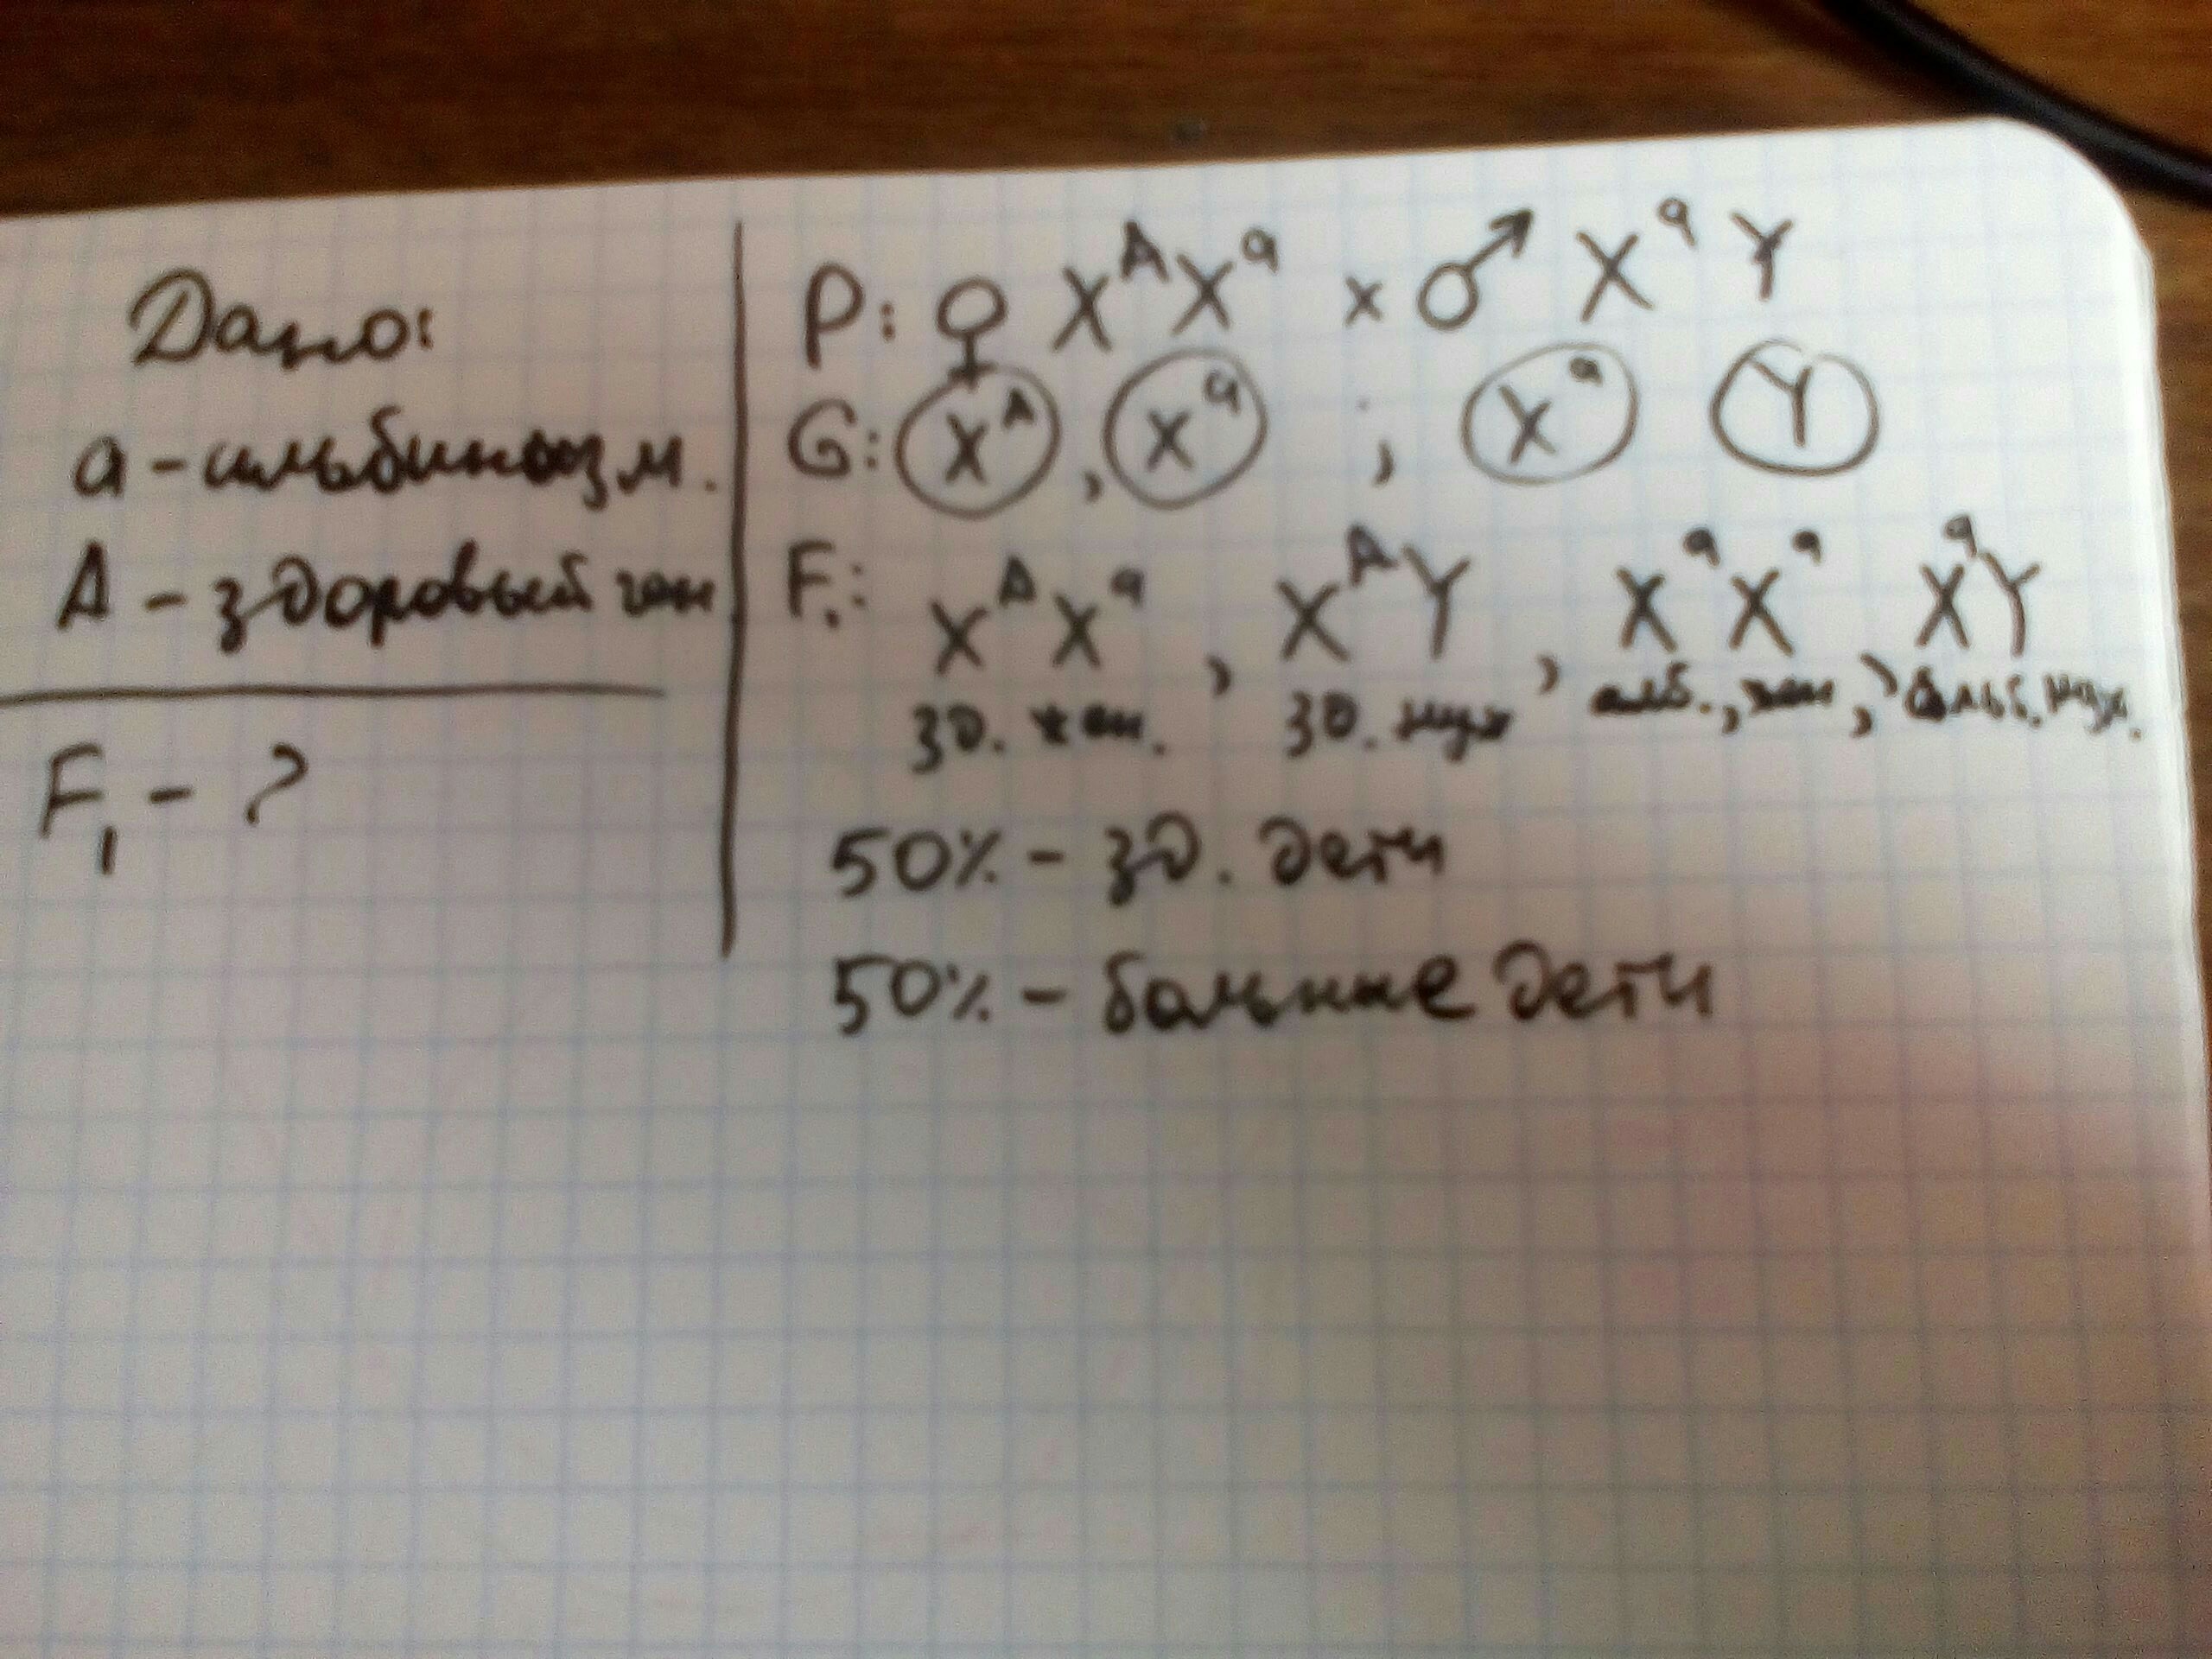 Дано:
а - альбинизм.
А - здоровый ген
F₁ - ?
P: ♀ XᴬXᵃ × ♂ XᵃY
G: Xᴬ, Xᵃ ; Xᵃ Y
F₁: XᴬXᵃ, XᴬY, XᵃXᵃ, XᵃY
зд. жен. зд. муж алб., жен, альб. муж.
50% - зд. дети
50% - больные дети